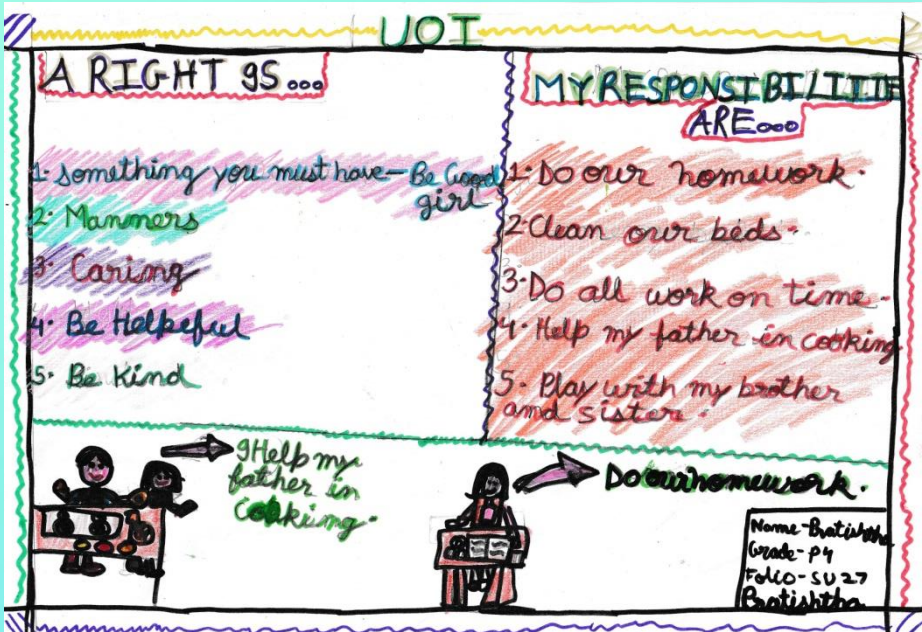 UOI
A RIGHT IS...
1. Something you must have - Be Good
girl
2. Manners
3. Caring
4. Be Helpeful
5. Be Kind
MY RESPONSIBILITIE
ARE...
1. Do our homework.
2. Clean our beds.
3. Do all work on time.
4. Help my father in cooking
5. Play with my brother
and sister.
I Help my
father in
Cooking.
Do our homework.
Name - Pratishtha
Grade - P4
Folio - SU27
Pratishtha